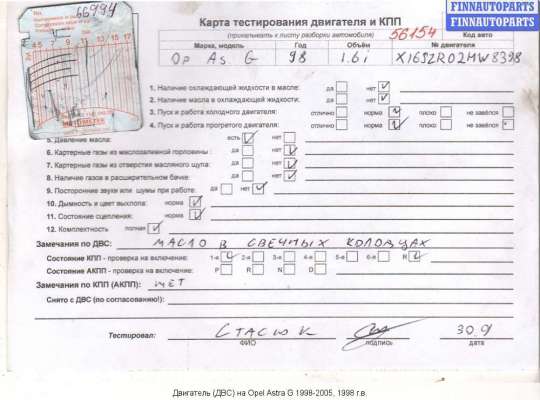 FINNAUTOPARTS
FINNAUTOPARTS
66994
4 5 7 9 11 13 15 17
Карта тестирования двигателя и КПП
(прикалывать к листу разборки автомобиля)
56154
Код авто
Марка, модель Год Объём № двигателя
Op As G 98 1.6i X16SZR02MW8398
1. Наличие охлаждающей жидкости в масле: да нет
2. Наличие масла в охлаждающей жидкости: да нет
3. Пуск и работа холодного двигателя: отлично норма плохо не завёлся
4. Пуск и работа прогретого двигателя: отлично норма плохо не завёлся
5. Давление масла: есть нет
6. Картерные газы из маслозаливной горловины : да нет
7. Картерные газы из отверстия масляного щупа: да нет
8. Наличие газов в расширительном бачке: да нет
9. Посторонние звуки или шумы при работе: да нет
10. Дымность и цвет выхлопа: норма
11. Состояние сцепления: норма
12. Комплектность полная
Замечания по ДВС: МАСЛО В СВЕЧНЫХ КОЛОДЦАХ
Состояние КПП - проверка на включение: 1-я 2-я 3-я 4-я 5-я 6-я R
Состояние АКПП - проверка на включение: P R N D
Замечания по КПП (АКПП): НЕТ
Снято с ДВС (по согласованию!):
Тестировал: СТАСЮК 30.9
ФИО подпись дата
Двигатель (ДВС) на Opel Astra G 1998-2005, 1998 г.в.